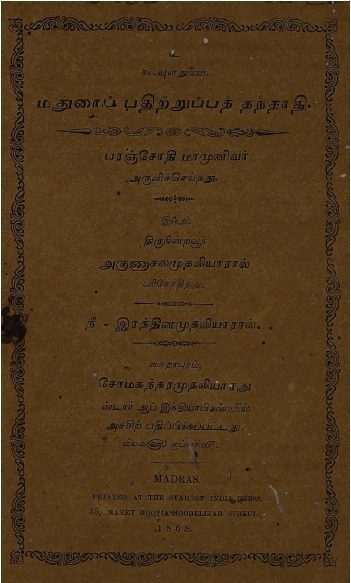 உ
கடவுள்துணை.
மதுரைப் பதிற்றுப்பத் தந்தாதி.
பரஞ்சோதி மாமுனிவர்
அருளிச்செய்தது.
இஃது,
திருநின்றவூர்
அருணாசலமுதலியாரால்
பரிசோதித்து.
நீ - இரத்தினமுதலியாரால்.
சைதாபுரம்,
சோமசுந்தரமுதலியாரது
ஸ்டார் ஆப் இந்தியாபிரஸ்ஸில்
அச்சிற் பதிப்பிக்கப்பட்டது.
MADRAS.
PRINTED AT THE STAR OF INDIA PRESS.
MOODELLIAR STREET.
1868.